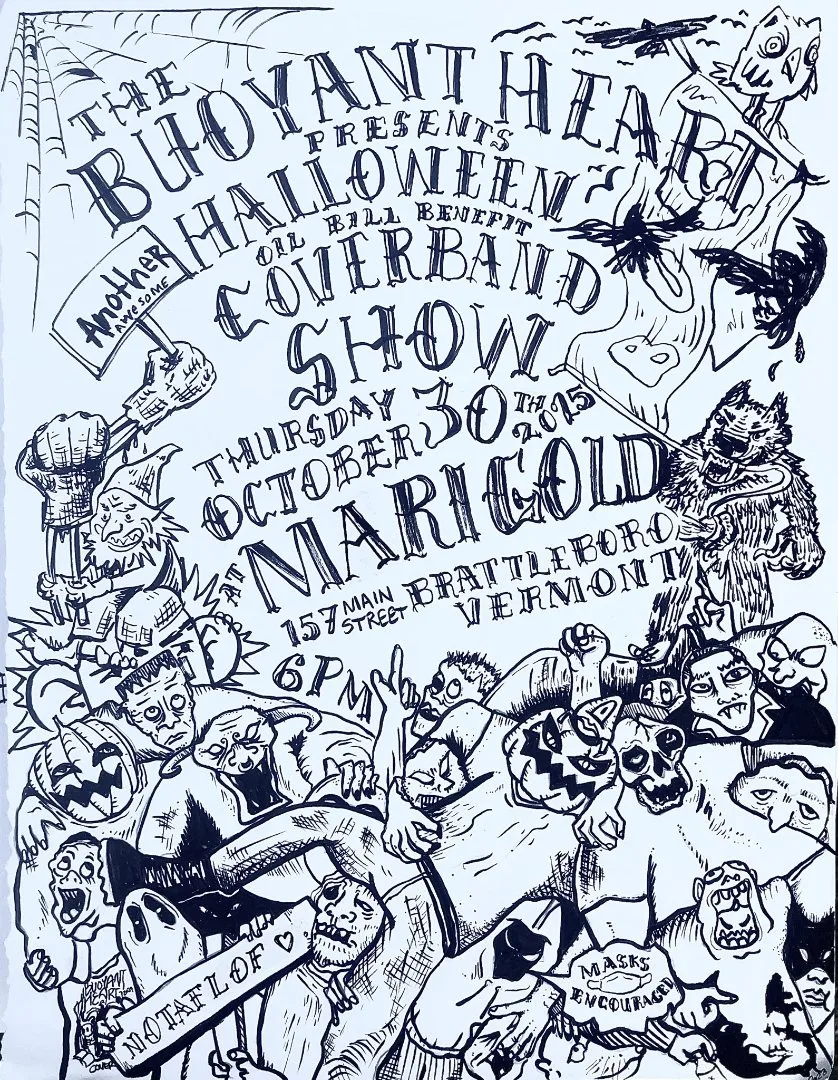 THE
BUOYANT HEART
PRESENTS
HALLOWEEN
OIL BILL BENEFIT
Another
AWESOME
COVERBAND
SHOW
THURSDAY
OCTOBER 30TH 2025
AT MARIGOLD
157 MAIN STREET BRATTLEBORO
VERMONT
6PM
NOTAFLOF ♡
BUOYANT
HEART
MASKS
ENCOURAGED